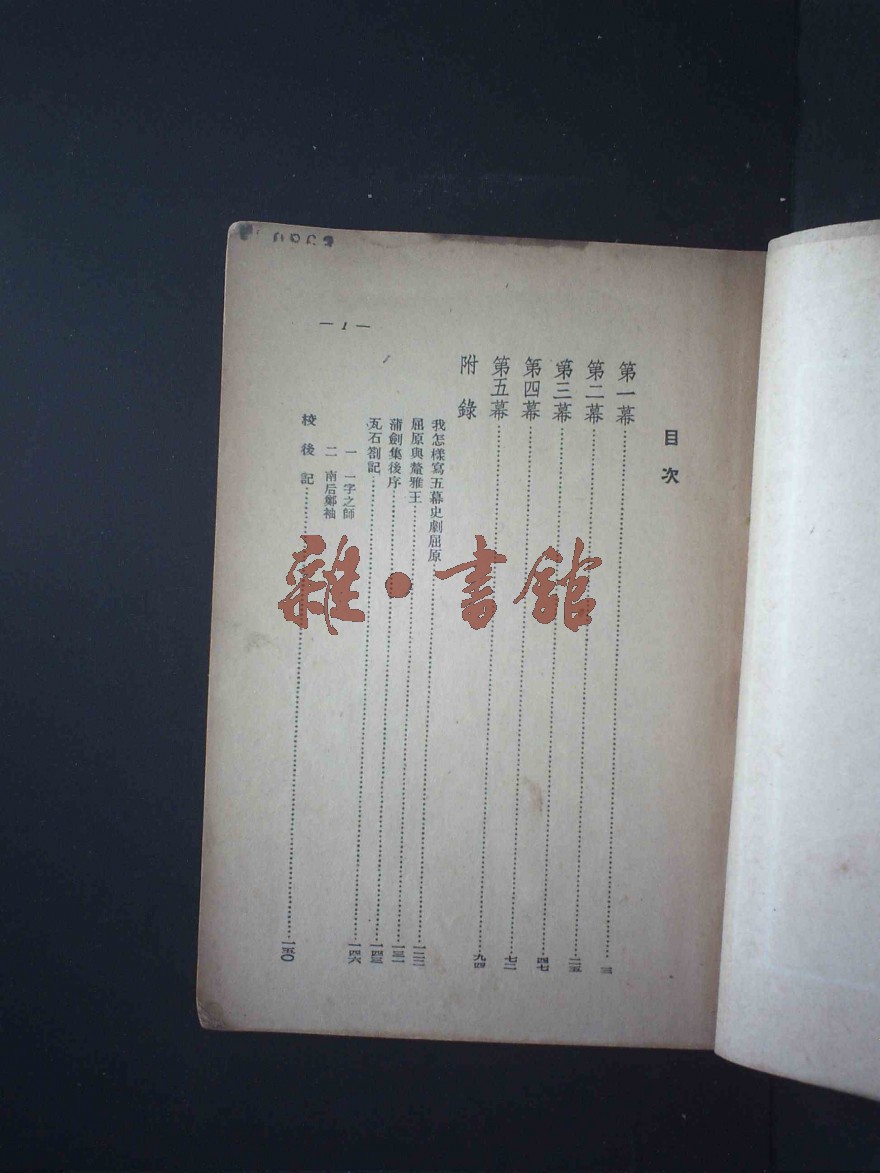 目次
第一幕……三
第二幕……二五
第三幕……四七
第四幕……七二
第五幕……九四
附錄
我怎樣寫五幕史劇屈原……一二二
屈原與釐雅王……一三一
蒲劍集後序……一四三
瓦石劄記……一四六
一 一字之師
二 南后鄭袖
校後記……一五〇
— 1 —
雜·書館